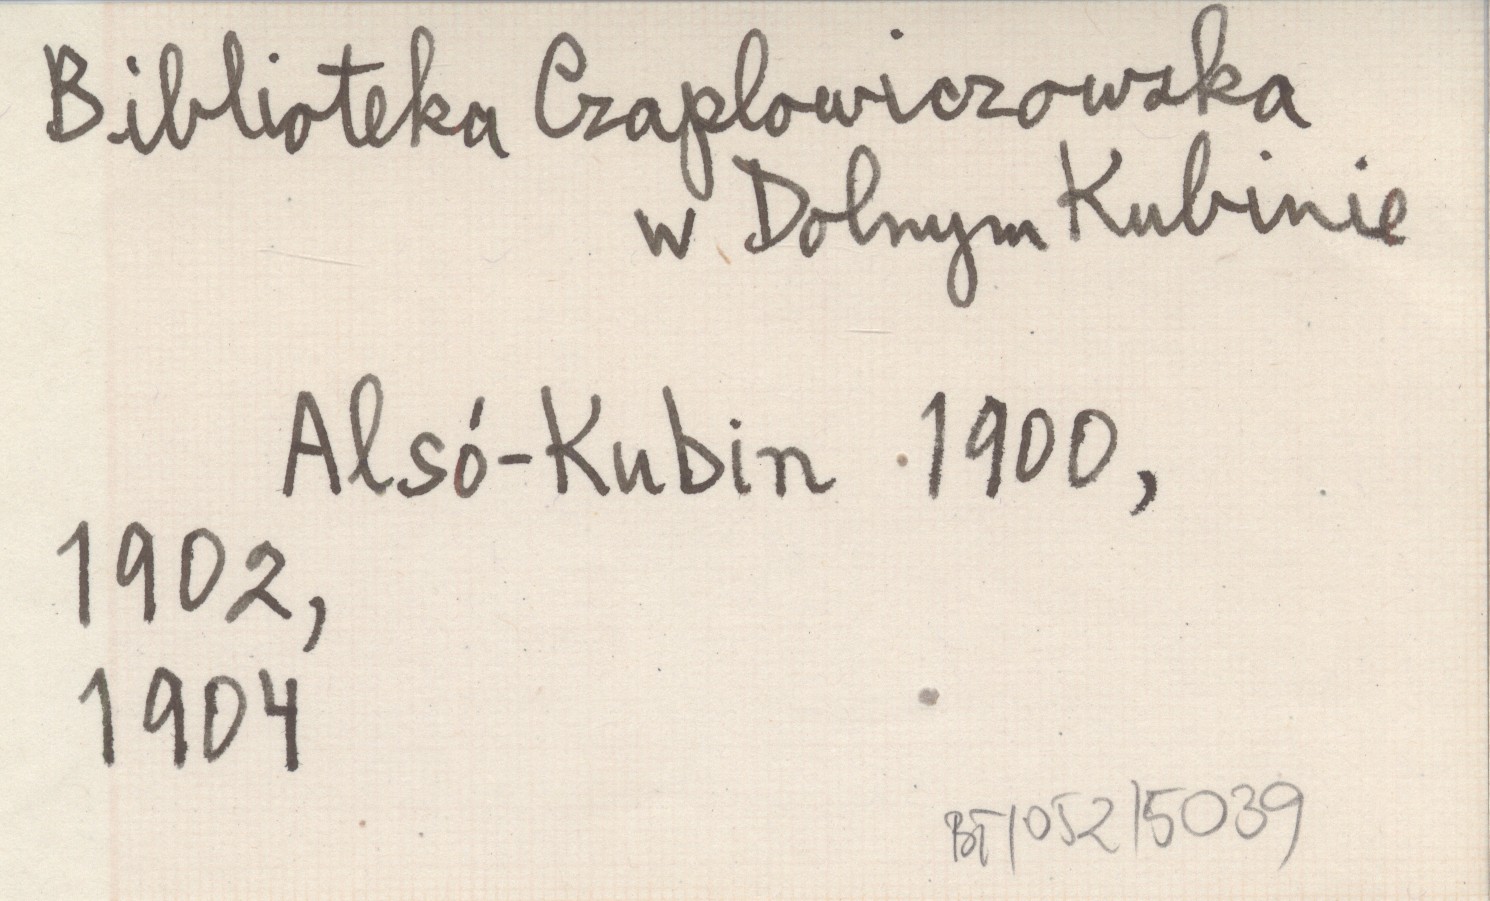 Biblioteka Czaplowiczowska
w Dolnym Kubinie
Alsó-Kubin 1900,
1902,
1904
BT/052/5039